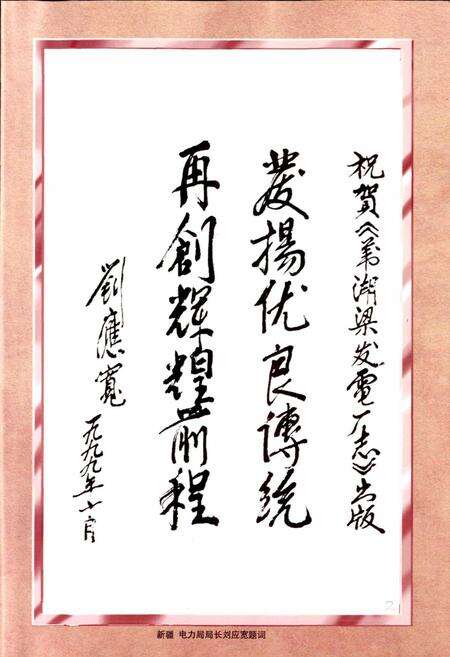 祝賀《苇湖梁发電厂志》出版
發揚优良傳統
再創輝煌前程
劉應寬
一九九九年十月
新疆 电力局局长刘应宽题词